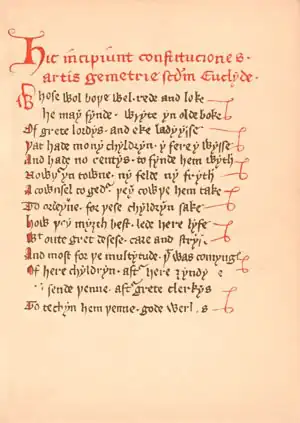 Hic incipiunt constituciones
artis gemetrie scdm Euclyde.
Whose wol boþe wel rede and loke
he may fynde wryte yn olde boke
Of grete lordys and eke ladyysse
Þat hade mony chyldryn y fere y wysse
And hade no rentys to fynde hem wyth
Nowþr yn towne ny felde ny fryth
A cownsel togedr þey cowþe hem take
To ordeyne for þese chyldryn sake
how þey myȝth best lede here lyfe
Wtoute gret desese care and stryf
And most for þe multytude þt was comyng
Of here chyldryn aftr here ȝyndynge
sende þenne aftr grete clerkys
To techyn hem þenne gode werkys